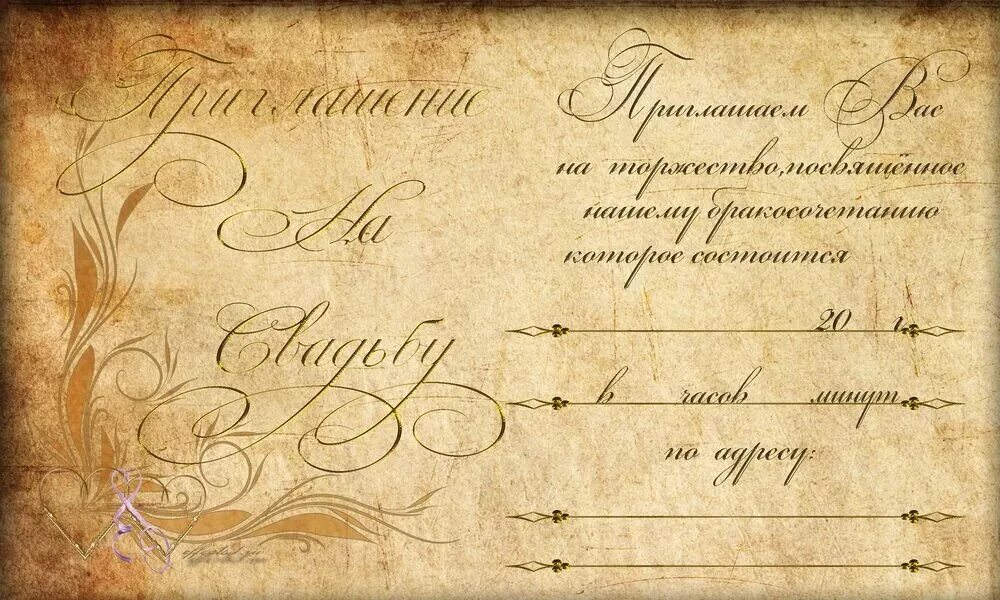 Приглашение
На
Свадьбу
Приглашаем Вас
на торжество,посвящённое
нашему бракосочетанию
которое состоится
20 г.
в часов минут
по адресу: